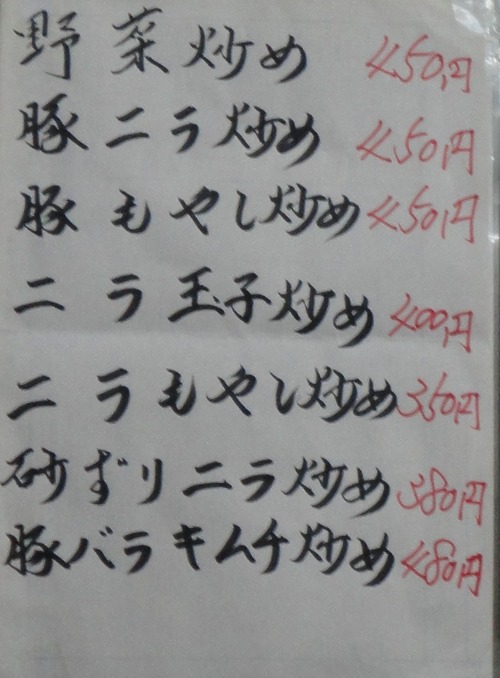 野菜炒め 450円
豚ニラ炒め 450円
豚もやし炒め 450円
ニラ玉子炒め 400円
ニラもやし炒め 350円
砂ずりニラ炒め 380円
豚バラキムチ炒め 480円